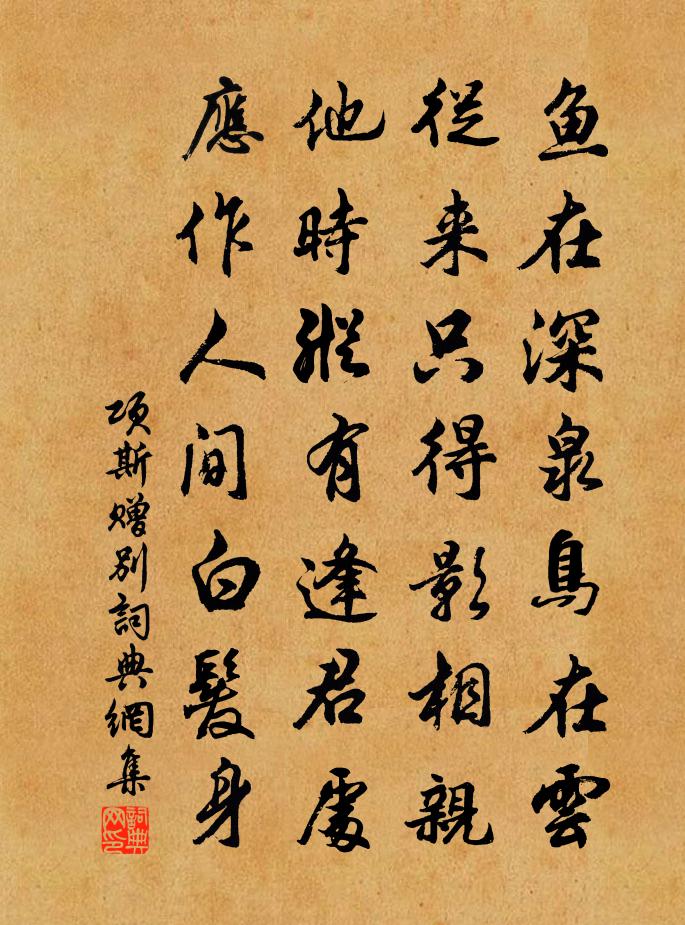 鱼在深泉鳥在雲
從来只得影相親
他時縱有逢君處
應作人间白髮身
項斯贈别詞典網集
詞典网印